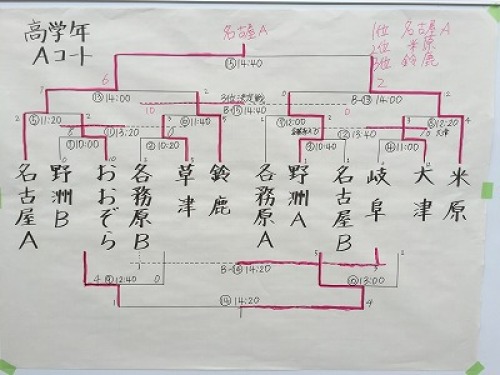 高学年
Aコート
名古屋A
1位 名古屋A
2位 米原
3位 鈴鹿
⑮14:40
6
2
⑬14:00
3位決定戦
B-⑮14:40
B-⑬14:00
10
0
⑤11:20
⑥11:40
①12:00
⑤12:20
⑩13:20
⑫13:40
①10:00
②10:20
③10:40
④11:00
名古屋A
野洲B
おおぞら
各務原B
草津
鈴鹿
各務原A
野洲A
名古屋B
岐阜
大津
米原
B-⑭14:20
4
⑨12:40
0
⑩13:00
1
⑭14:20
4